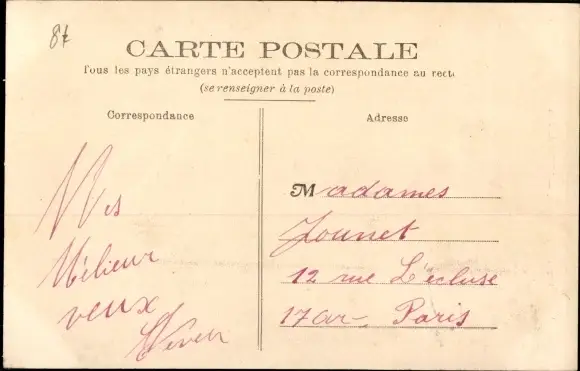 CARTE POSTALE
Tous les pays étrangers n'acceptent pas la correspondance au recto
(se renseigner à la poste)
Correspondance
Adresse
Mes
Mélieur
veux
Madames
Jounet
12 rue L'écluse
17ar Paris